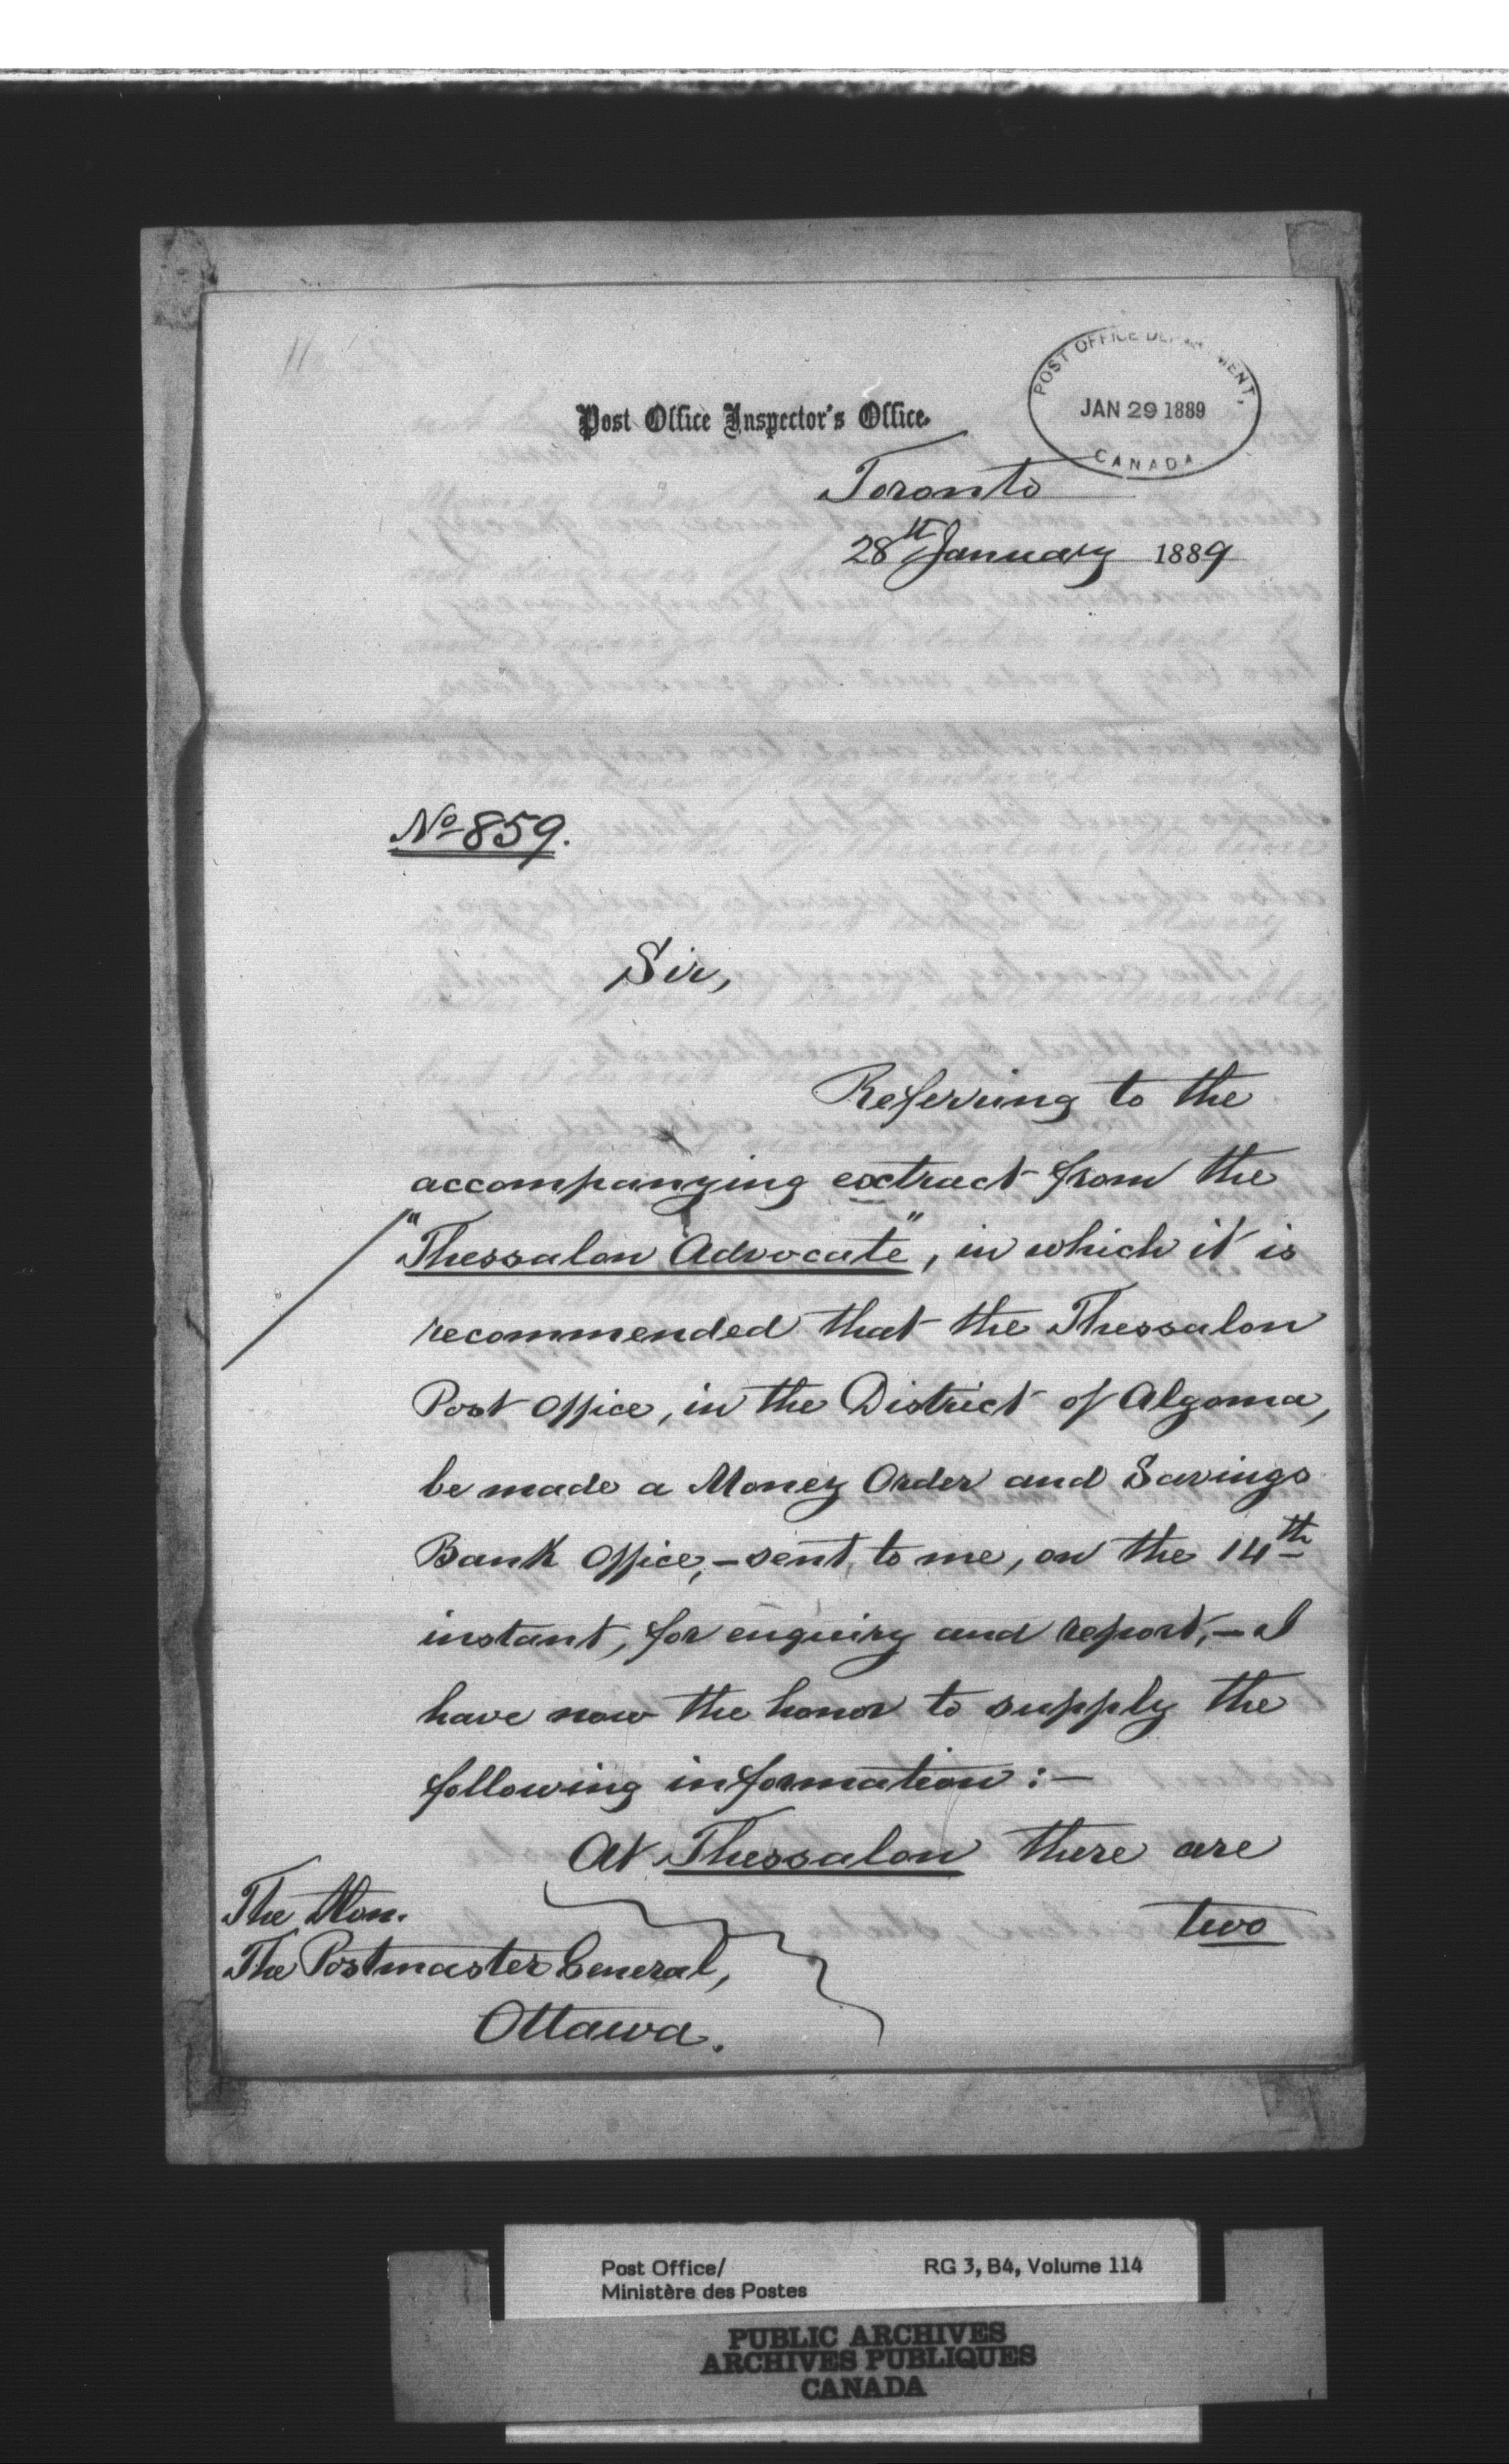 11
POST OFFICE DEPARTMENT,
JAN 29 1889
CANADA
Post Office Inspector's Office.
Toronto
28th January 1889
No 859.
Sir,
Referring to the
accompanying extract from the
"Thessalon Advocate", in which it is
recommended that the Thessalon
Post Office, in the District of Algoma,
be made a Money Order and Savings
Bank Office,—sent, to me, on the 14th
instant, for enquiry and report,—I
have now the honor to supply the
following information:—
At Thessalon there are
two
The Hon.
The Postmaster General,
Ottawa.
Post Office/
Ministère des Postes
RG 3, B4, Volume 114
PUBLIC ARCHIVES
ARCHIVES PUBLIQUES
CANADA